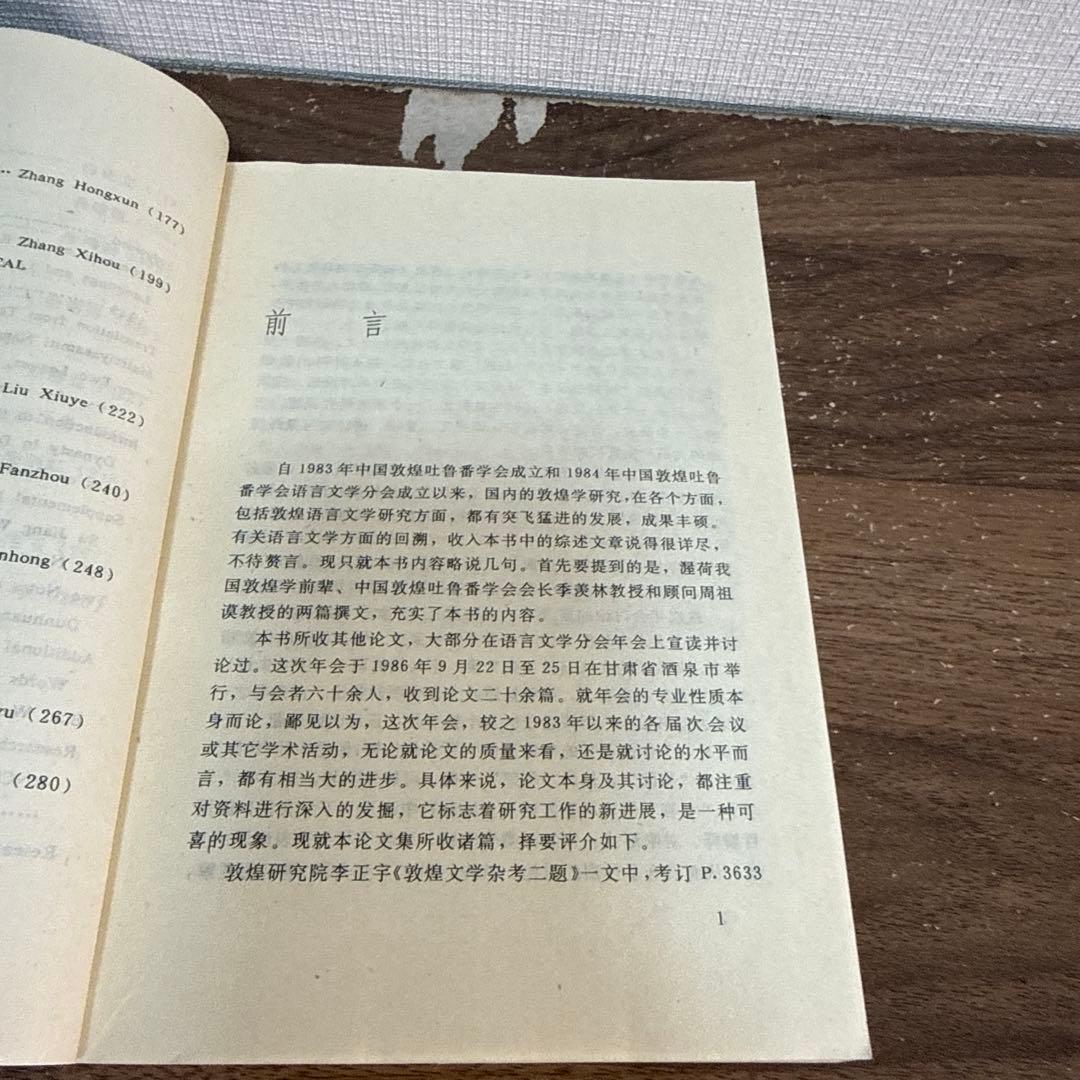 Zhang Hongxun (177)
Zhang Xihou (199)
CAL
Liu Xiuye (222)
Fanzhou (240)
nhong (248)
ru (267)
(280)
前 言
自 1983 年中国敦煌吐鲁番学会成立和 1984 年中国敦煌吐鲁
番学会语言文学分会成立以来，国内的敦煌学研究，在各个方面，
包括敦煌语言文学研究方面，都有突飞猛进的发展，成果丰硕。
有关语言文学方面的回溯，收入本书中的综述文章说得很详尽，
不待赘言。现只就本书内容略说几句。首先要提到的是，渥荷我
国敦煌学前辈、中国敦煌吐鲁番学会会长季羡林教授和顾问周祖
谟教授的两篇撰文，充实了本书的内容。
本书所收其他论文，大部分在语言文学分会年会上宣读并讨
论过。这次年会于 1986 年 9 月 22 日至 25 日在甘肃省酒泉市举
行，与会者六十余人，收到论文二十余篇。就年会的专业性质本
身而论，鄙见以为，这次年会，较之 1983 年以来的各届次会议
或其它学术活动，无论就论文的质量来看，还是就讨论的水平而
言，都有相当大的进步。具体来说，论文本身及其讨论，都注重
对资料进行深入的发掘，它标志着研究工作的新进展，是一种可
喜的现象。现就本论文集所收诸篇，择要评介如下。
敦煌研究院李正宇《敦煌文学杂考二题》一文中，考订 P. 3633
1